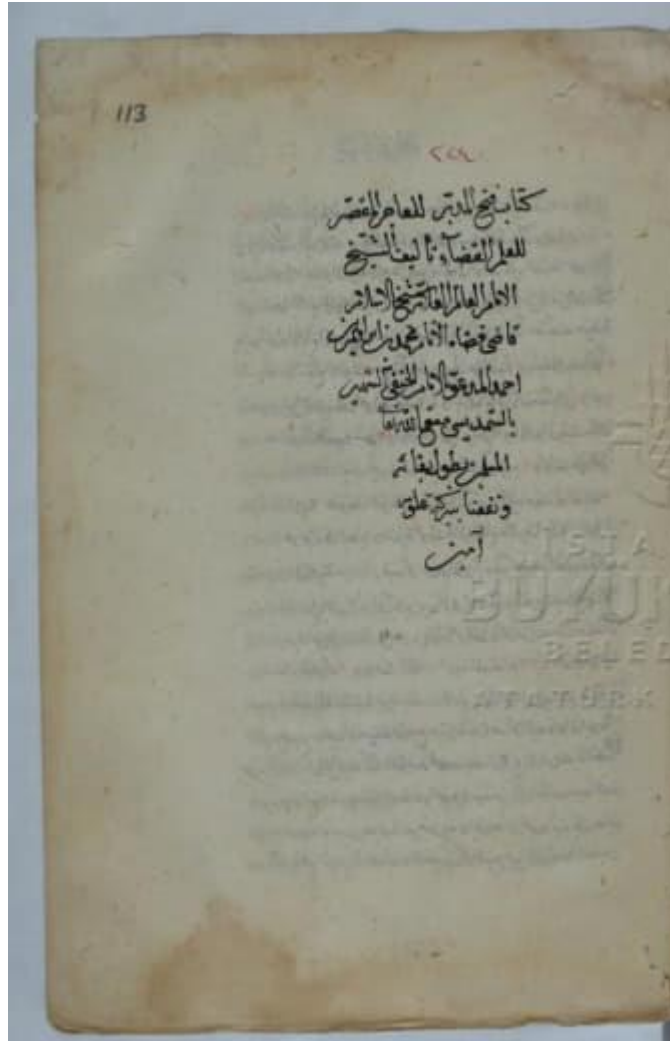 113
كتاب فتح المدبر للعاجز المقصر
للعلم القضاء تأليف الشيخ
الامام العالم العلامة شيخ الاسلام
قاضي قضاة الانام محمد بن ابراهيم بن
احمد المدعو بالامام الحنفي الشهير
بالسمديسي متع الله تعالى
المسلمين بطول بقائه
ونفعنا ببركة علومه
آمين